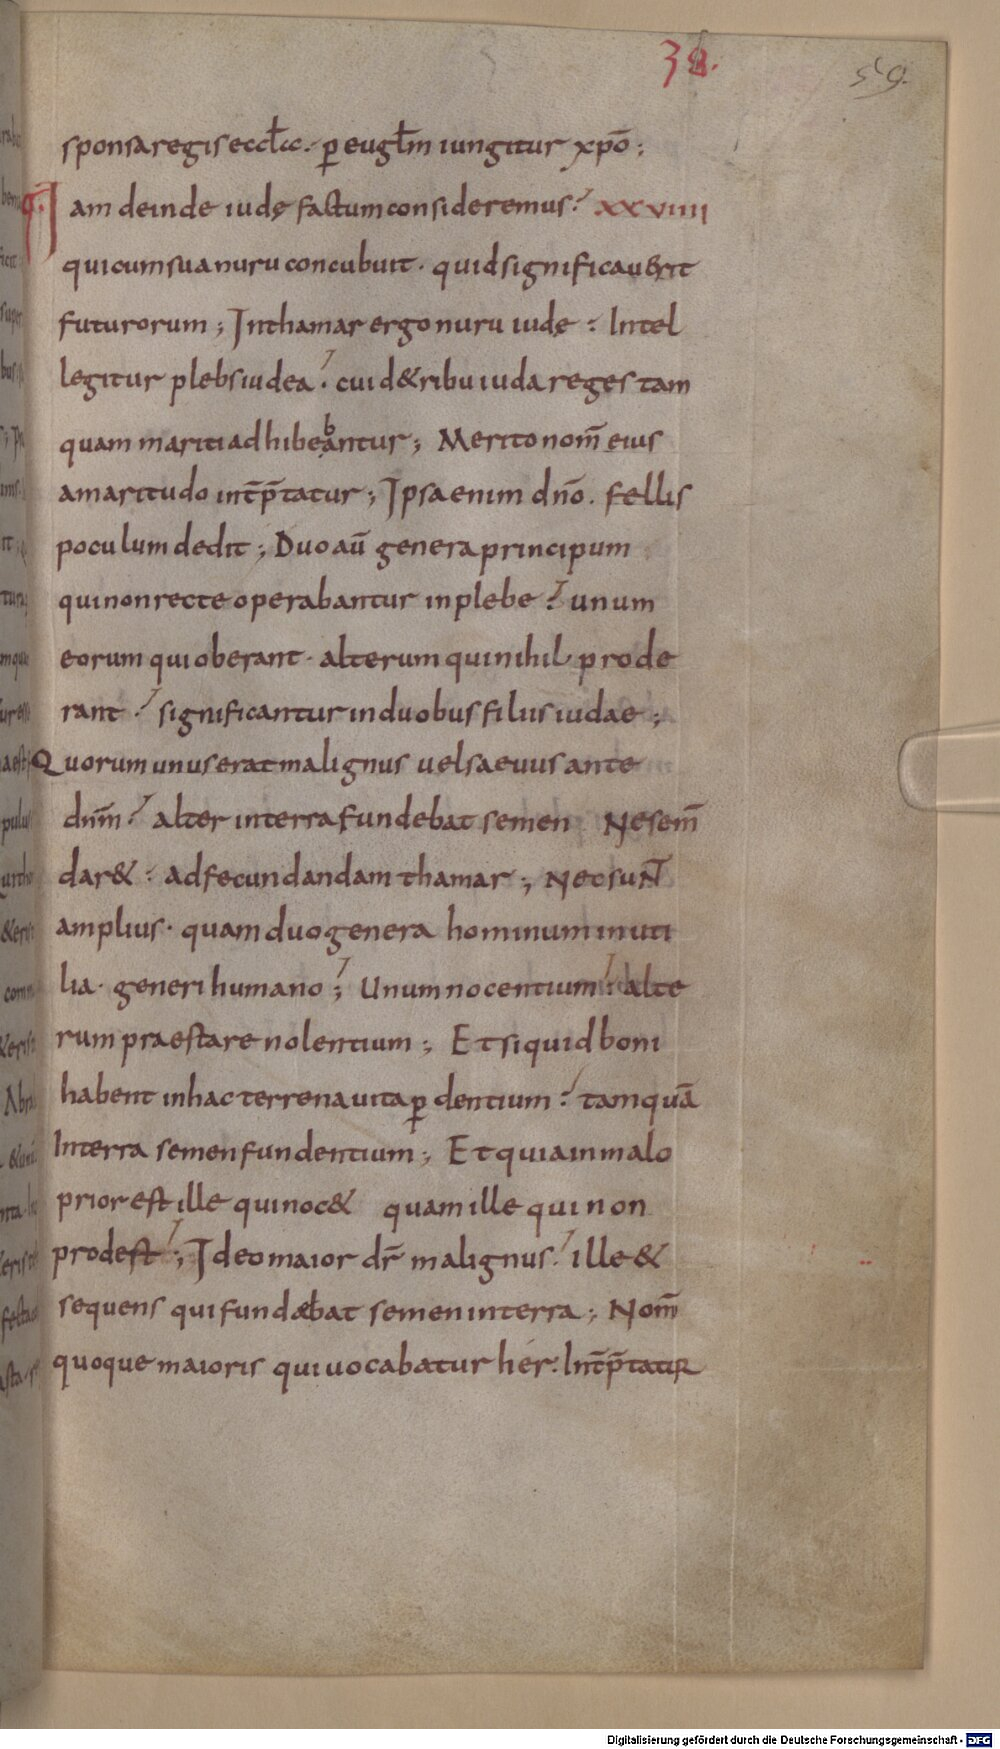 38. 59.
sponsa regis eccl̄a. ꝑ eugl̄m iungitur xp̄o;
Iam deinde iudę factum consideremus. XXVIIII
qui cum sua nuru concubuit. quid significaverit
futurorum; In thamar ergo nuru iudę: Intel
legitur plebs iudea. cui de tribu iuda reges tam
quam mariti adhibebantur; Merito nom̄ eius
amaritudo int̄p̄tatur; Ipsa enim dn̄o. fellis
poculum dedit; Duo aū genera principum
qui non recte operabantur in plebe. unum
eorum qui oberant. alterum qui nihil prode
rant. significantur in duobus filiis iudae;
Quorum unus erat malignus vel saevus ante
dn̄m. alter in terra fundebat semen Ne sem̄
dar&: ad fecundandam thamar; Nec sunt
amplius. quam duo genera hominum inuti
lia. generi humano; Unum nocentium. alte
rum praestare nolentium; Et si quid boni
habent in hac terrena vita ꝑdentium. tamquā
In terra semen fundentium; Et quia in malo
prior est ille qui noc& quam ille qui non
prodest; Ideo maior dr̄ malignus. ille &
sequens qui fundebat semen in terra; Nom̄
quoque maioris qui vocabatur hér: Int̄p̄tatur
Digitalisierung gefördert durch die Deutsche Forschungsgemeinschaft - DFG